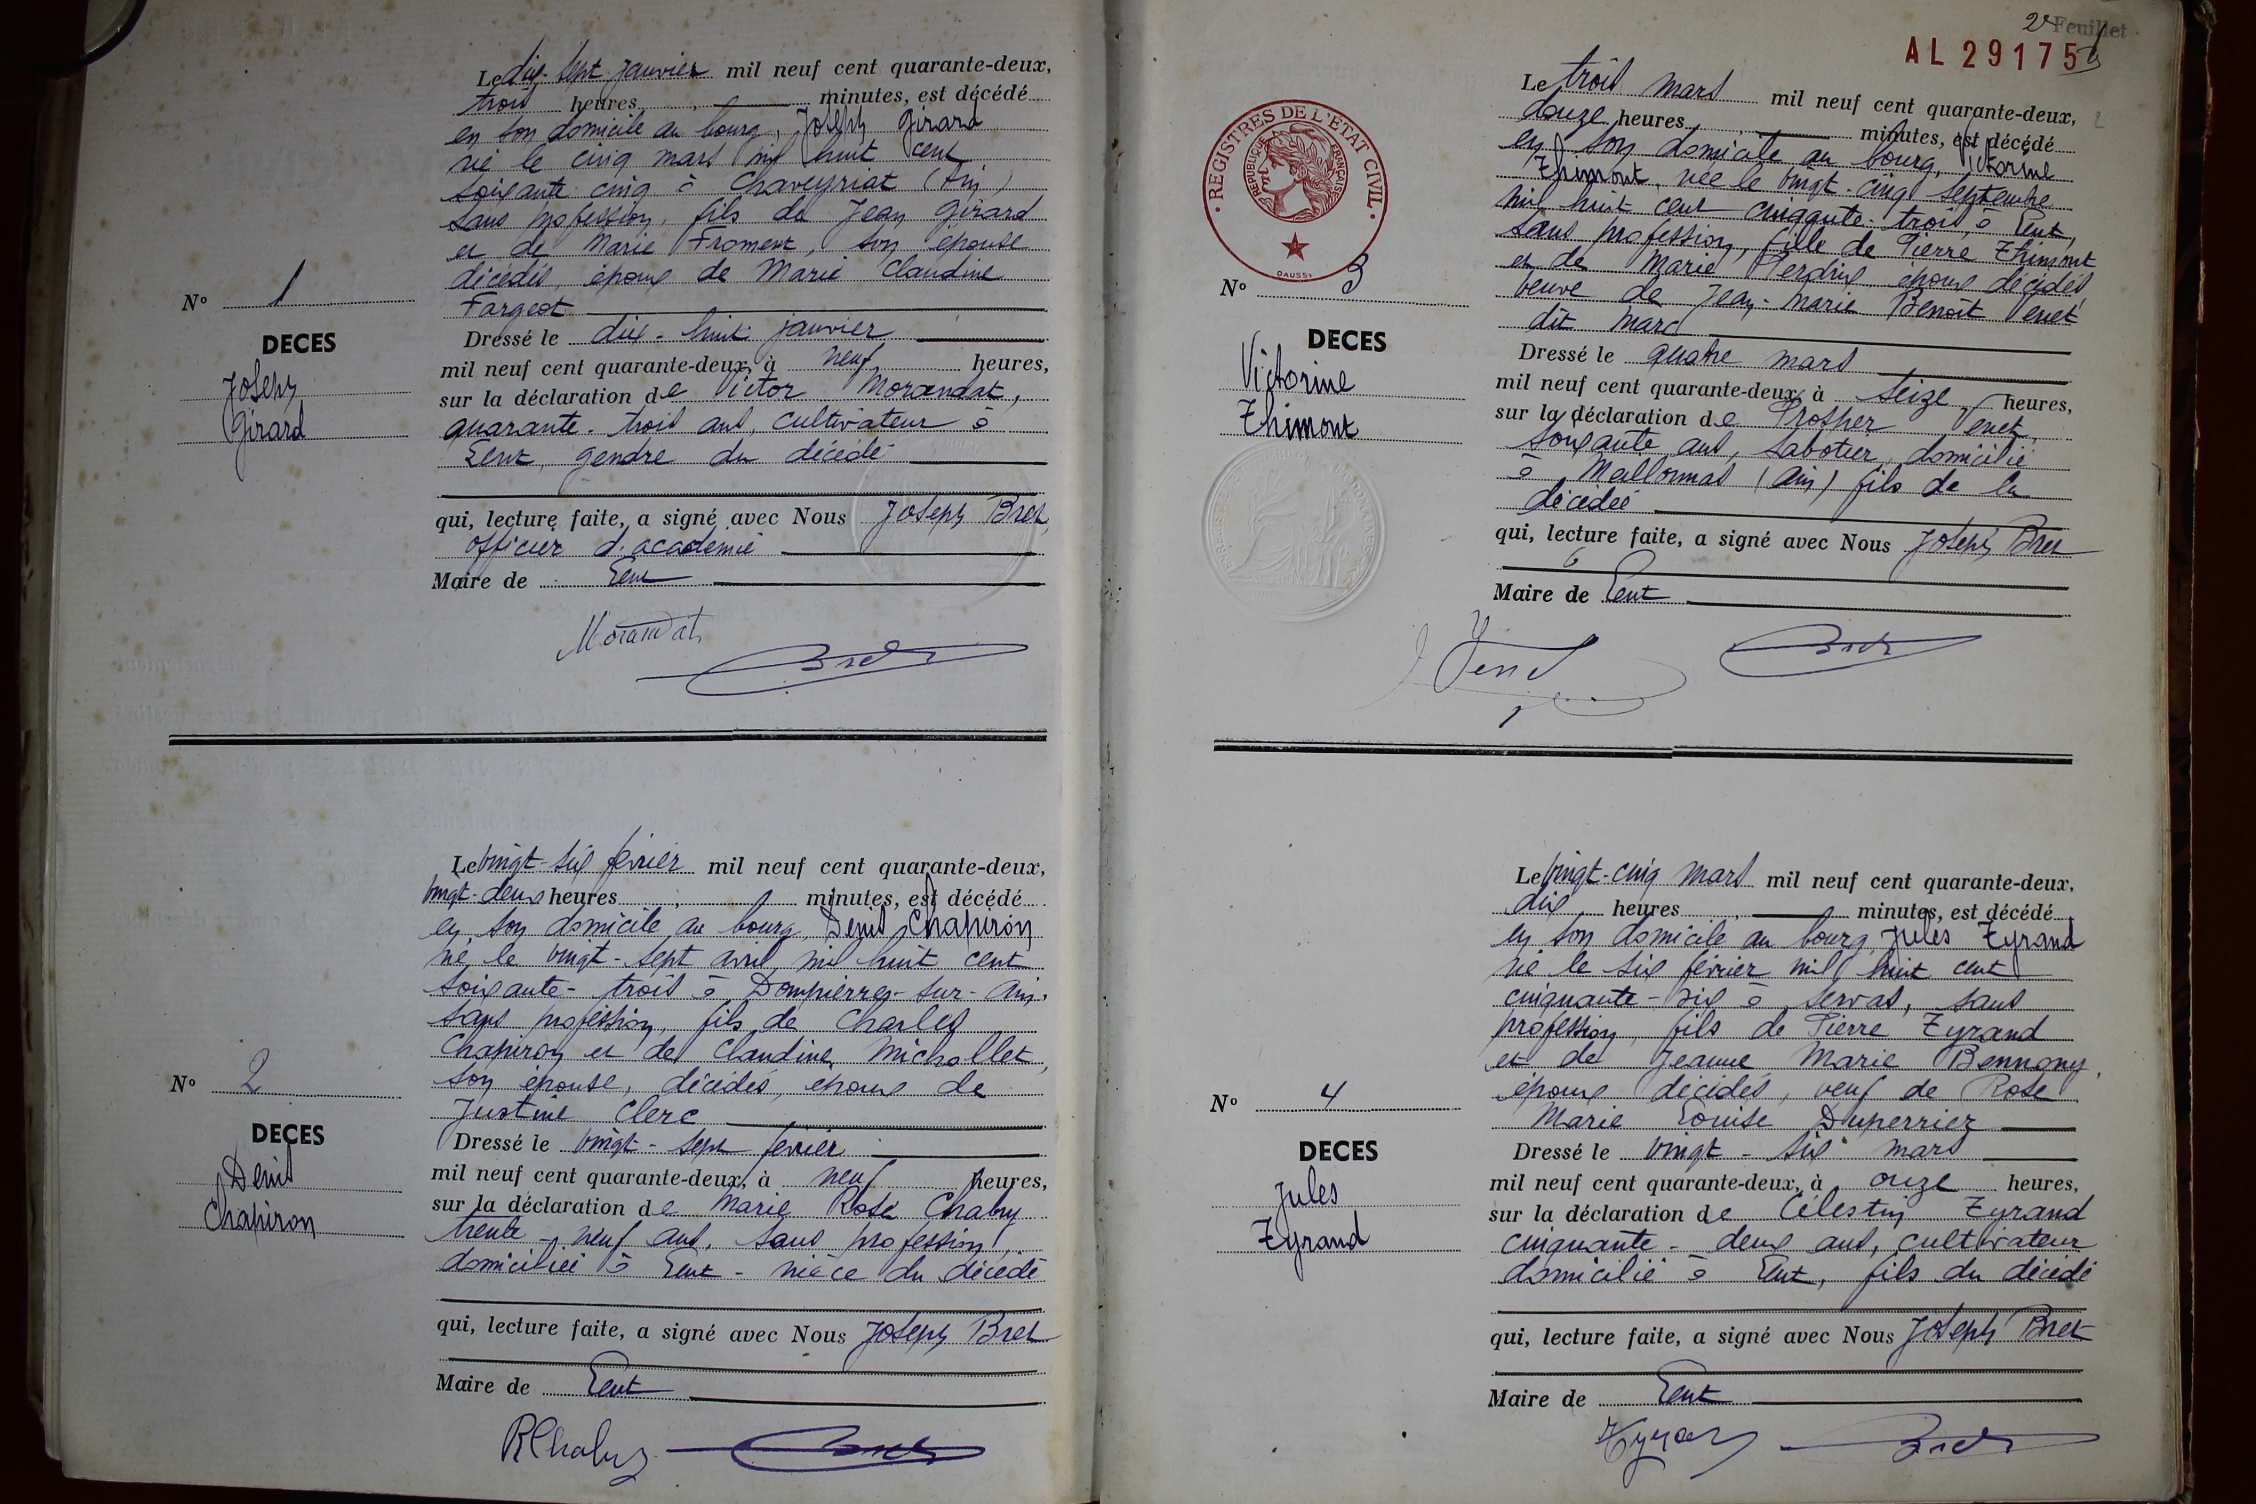 Le dix-sept janvier mil neuf cent quarante-deux,
trois heures, minutes, est décédé
en son domicile au bourg, Joseph Girard
né le cinq mars mil huit cent
soixante cinq à Chaveyriat (Ain)
sans profession, fils de Jean Girard
et de Marie Froment, son épouse
décédés, époux de Marie Claudine
Fargeot
Nº 1
DECES
Joseph
Girard
Dressé le dix-huit janvier
mil neuf cent quarante-deux, à neuf heures,
sur la déclaration de Victor Morandat,
quarante-trois ans, cultivateur à
Lent, gendre du décédé
qui, lecture faite, a signé avec Nous Joseph Bret,
officier d'académie
Maire de Lent
Morandat
Bret
Le vingt-six février mil neuf cent quarante-deux,
vingt-deux heures, minutes, est décédé
en son domicile au bourg, Denis Chapiron
né le vingt-sept avril mil huit cent
soixante-trois à Dompierre-sur-Ain,
sans profession, fils de Charles
Chapiron et de Claudine Michollet,
son épouse, décédés, époux de
Justine Clerc
Nº 2
DECES
Denis
Chapiron
Dressé le vingt-sept février
mil neuf cent quarante-deux, à neuf heures,
sur la déclaration de Marie Rose Chabry
trente-neuf ans, sans profession,
domiciliée à Lent - nièce du décédé
qui, lecture faite, a signé avec Nous Joseph Bret
Maire de Lent
Bret
2
Feuillet
AL 29175
REGISTRES DE L'ÉTAT CIVIL
RÉPUBLIQUE FRANÇAISE
DAUSSI
Le trois mars mil neuf cent quarante-deux,
douze heures, minutes, est décédé
en son domicile au bourg, Victorine
Thimont, née le vingt-cinq septembre
mil huit cent cinquante-trois à Lent,
sans profession, fille de Pierre Thimont
et de Marie Perdrix époux décédés,
veuve de Jean-Marie Benoît Venet
dit Marc
Nº 3
DECES
Victorine
Thimont
Dressé le quatre mars
mil neuf cent quarante-deux, à seize heures,
sur la déclaration de Prosper Venet,
soixante ans, sabotier, domicilié
à (Ain) fils de la
décédée
qui, lecture faite, a signé avec Nous Joseph Bret
Maire de Lent
Venet
Bret
Le vingt-cinq mars mil neuf cent quarante-deux,
dix heures, minutes, est décédé
en son domicile au bourg Jules Tyrand
né le six février mil huit cent
cinquante-six à Servas, sans
profession, fils de Pierre Tyrand
et de Jeanne Marie
époux décédés, veuf de Rose
Marie Louise Duperrier
Nº 4
DECES
Jules
Tyrand
Dressé le vingt-six mars
mil neuf cent quarante-deux, à onze heures,
sur la déclaration de Célestin Tyrand
cinquante-deux ans, cultivateur
domicilié à Lent, fils du décédé
qui, lecture faite, a signé avec Nous Joseph Bret
Maire de Lent
Tyrand
Bret